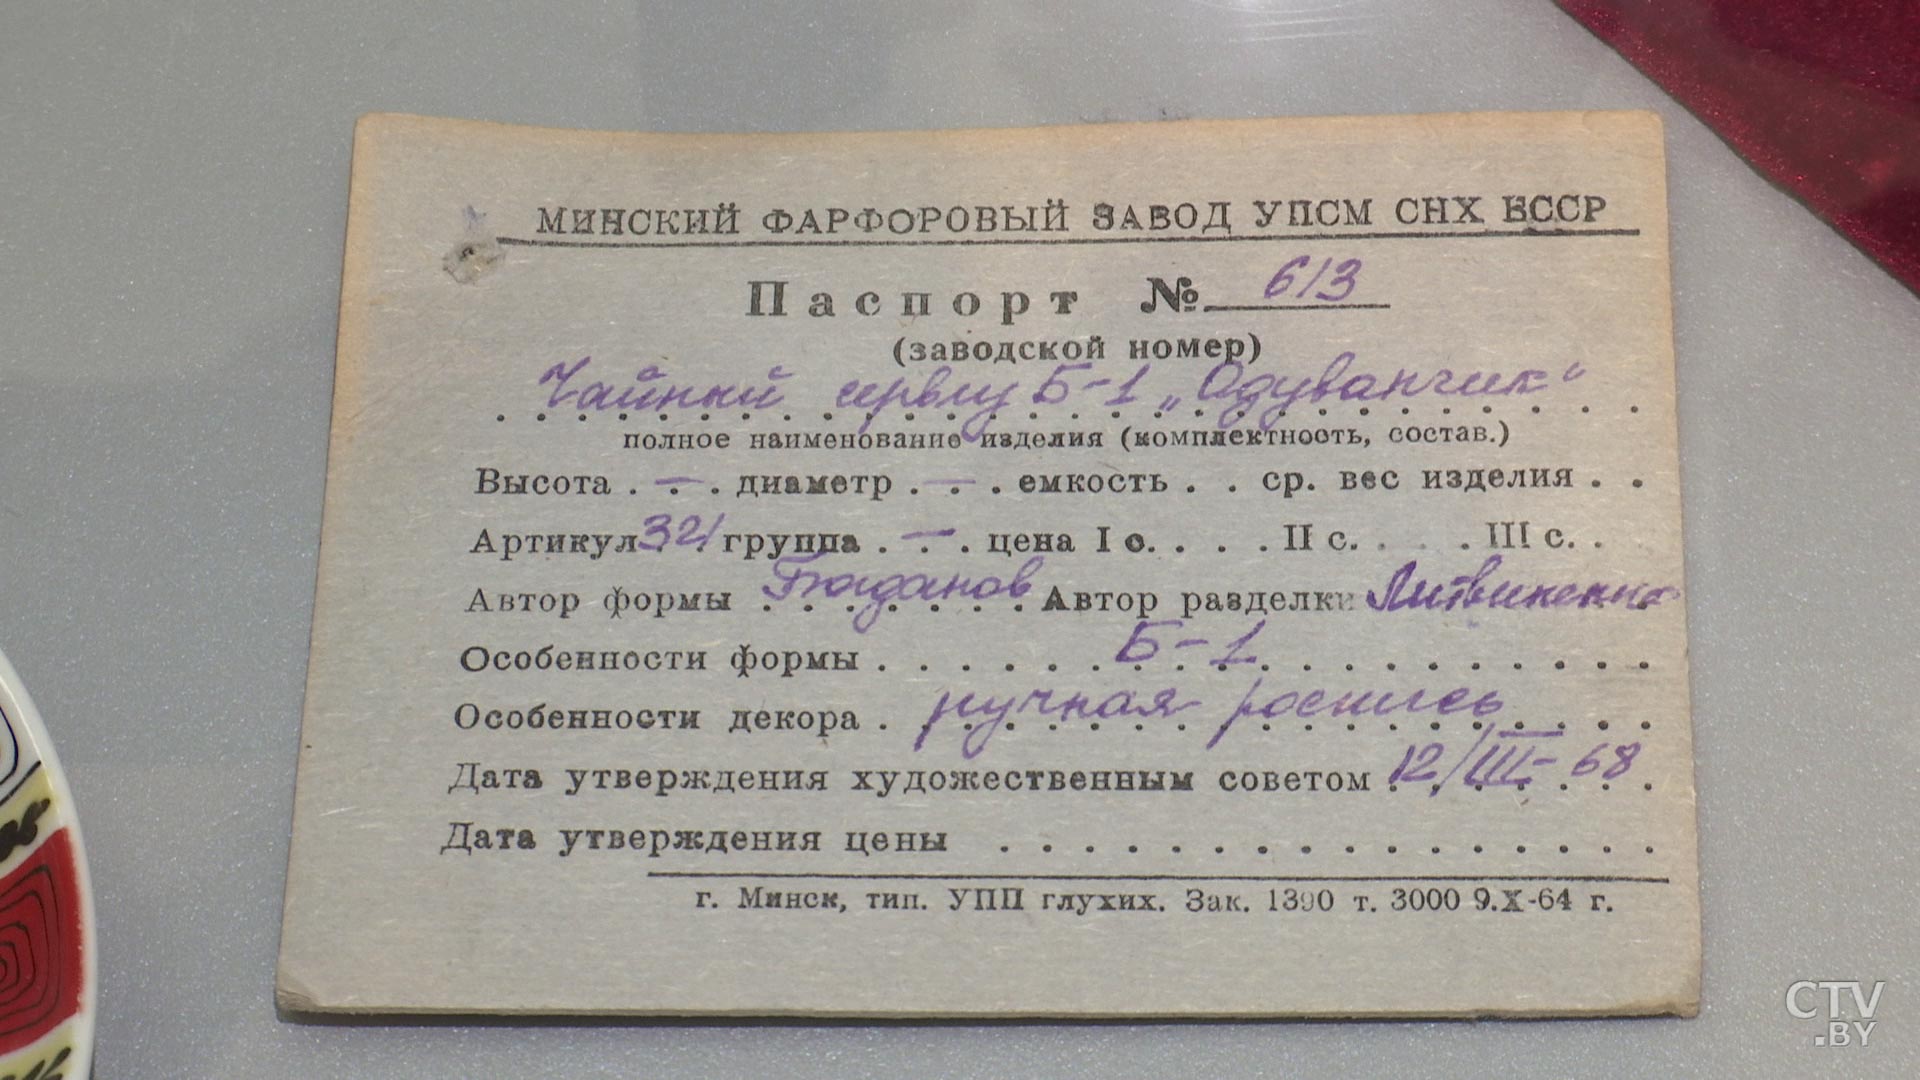 МИНСКИЙ ФАРФОРОВЫЙ ЗАВОД УПСМ СНХ БССР
Паспорт № 613
(заводской номер)
Чайный сервиз Б-1 „Одуванчик“
полное наименование изделия (комплектность, состав.)
Высота . — . диаметр . — . емкость . . ср. вес изделия . .
Артикул 321 группа . — . цена I с. . . . II с. . . . III с. .
Автор формы Богданов Автор разделки Литвиненко
Особенности формы . . . Б-1 . . .
Особенности декора . ручная роспись . .
Дата утверждения художественным советом 12/III-68
Дата утверждения цены . . . . . . . . . . . . . . . .
г. Минск, тип. УПП глухих. Зак. 1390 т. 3000 9.X-64 г.
CTV
.BY